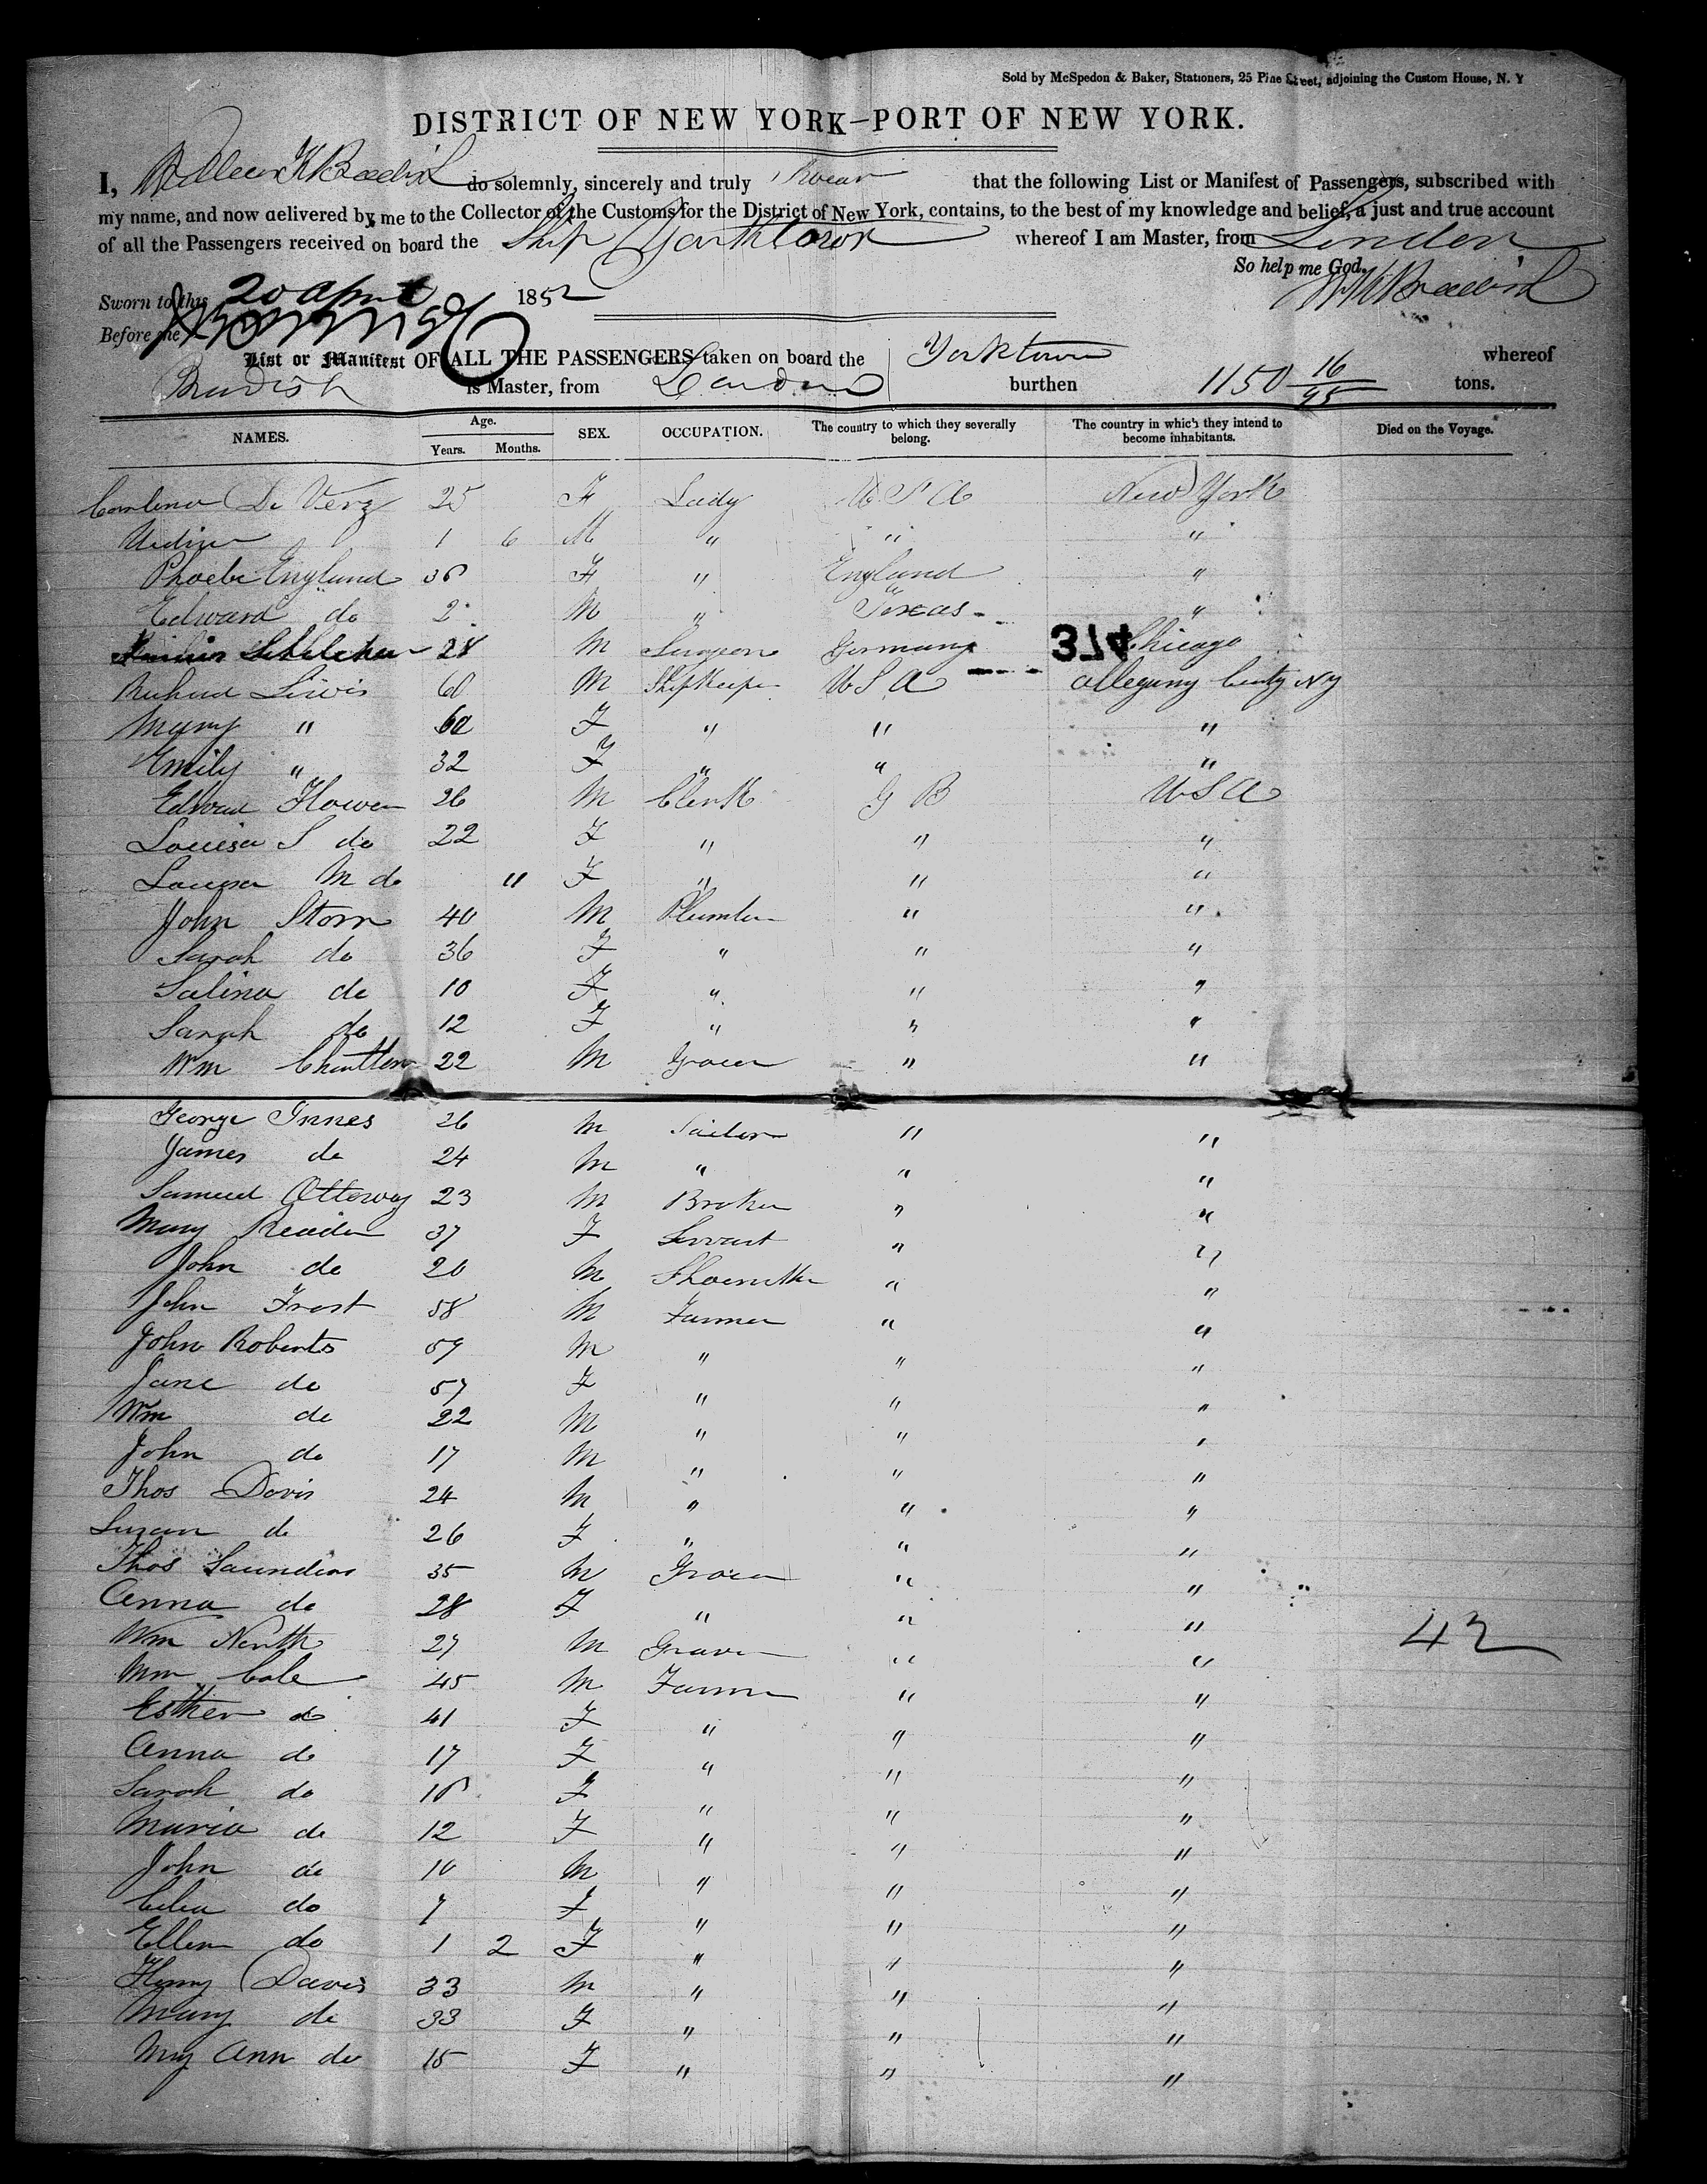 Sold by McSpedon & Baker, Stationers, 25 Pine Street, adjoining the Custom House, N. Y
DISTRICT OF NEW YORK—PORT OF NEW YORK.
I, do solemnly, sincerely and truly swear that the following List or Manifest of Passengers, subscribed with
my name, and now delivered by me to the Collector of the Customs for the District of New York, contains, to the best of my knowledge and belief, a just and true account
of all the Passengers received on board the Ship Yorktown whereof I am Master, from London
So help me God.
Sworn to this 20 April 1852
Before me
List or Manifest OF ALL THE PASSENGERS taken on board the Yorktown whereof
Bradish is Master, from London burthen 1150 16/95 tons.
NAMES. Age. Years. Months. SEX. OCCUPATION. The country to which they severally belong. The country in which they intend to become inhabitants. Died on the Voyage.
De Verz 25 F Lady U S A New York
1 6 M " " "
Phoebe England F " England "
Edward do 2 M " Texas "
28 M Surgeon Germany 374 Chicago
Richard Lewis 60 M U S A Allegany County NY
Mary " 60 F " " "
Emily " 32 F " " "
Edward Flower 26 M Clerk G B U S A
Louisa S do 22 F " " "
Louisa M do 11 F " " "
John Storr 40 M Plumber " "
Sarah do 36 F " " "
Salina do 10 F " " "
Sarah do 12 F " " "
Wm 22 M Grocer " "
George Innes 26 M Tailor " "
James do 24 M " " "
Samuel Ottoway 23 M Broker " "
Mary Reader 37 F Servant " "
John do 20 M " "
John Frost 58 M Farmer " "
John Roberts 59 M " " "
Jane do 57 F " " "
Wm do 22 M " " "
John do 17 M " " "
Thos Davis 24 M " " "
Susan do 26 F " " "
Thos Saunders 35 M Grocer " "
Anna do 28 F " " "
Wm North 27 M " "
42
Wm Cole 45 M Farmer " "
Esther do 41 F " " "
Anna do 17 F " " "
Sarah do F " " "
Maria do 12 F " " "
John do 10 M " " "
Celia do 7 F " " "
Ellen do 1 2 F " " "
Henry Davis 33 M " " "
Mary do 33 F " " "
My Ann do 15 F " " "